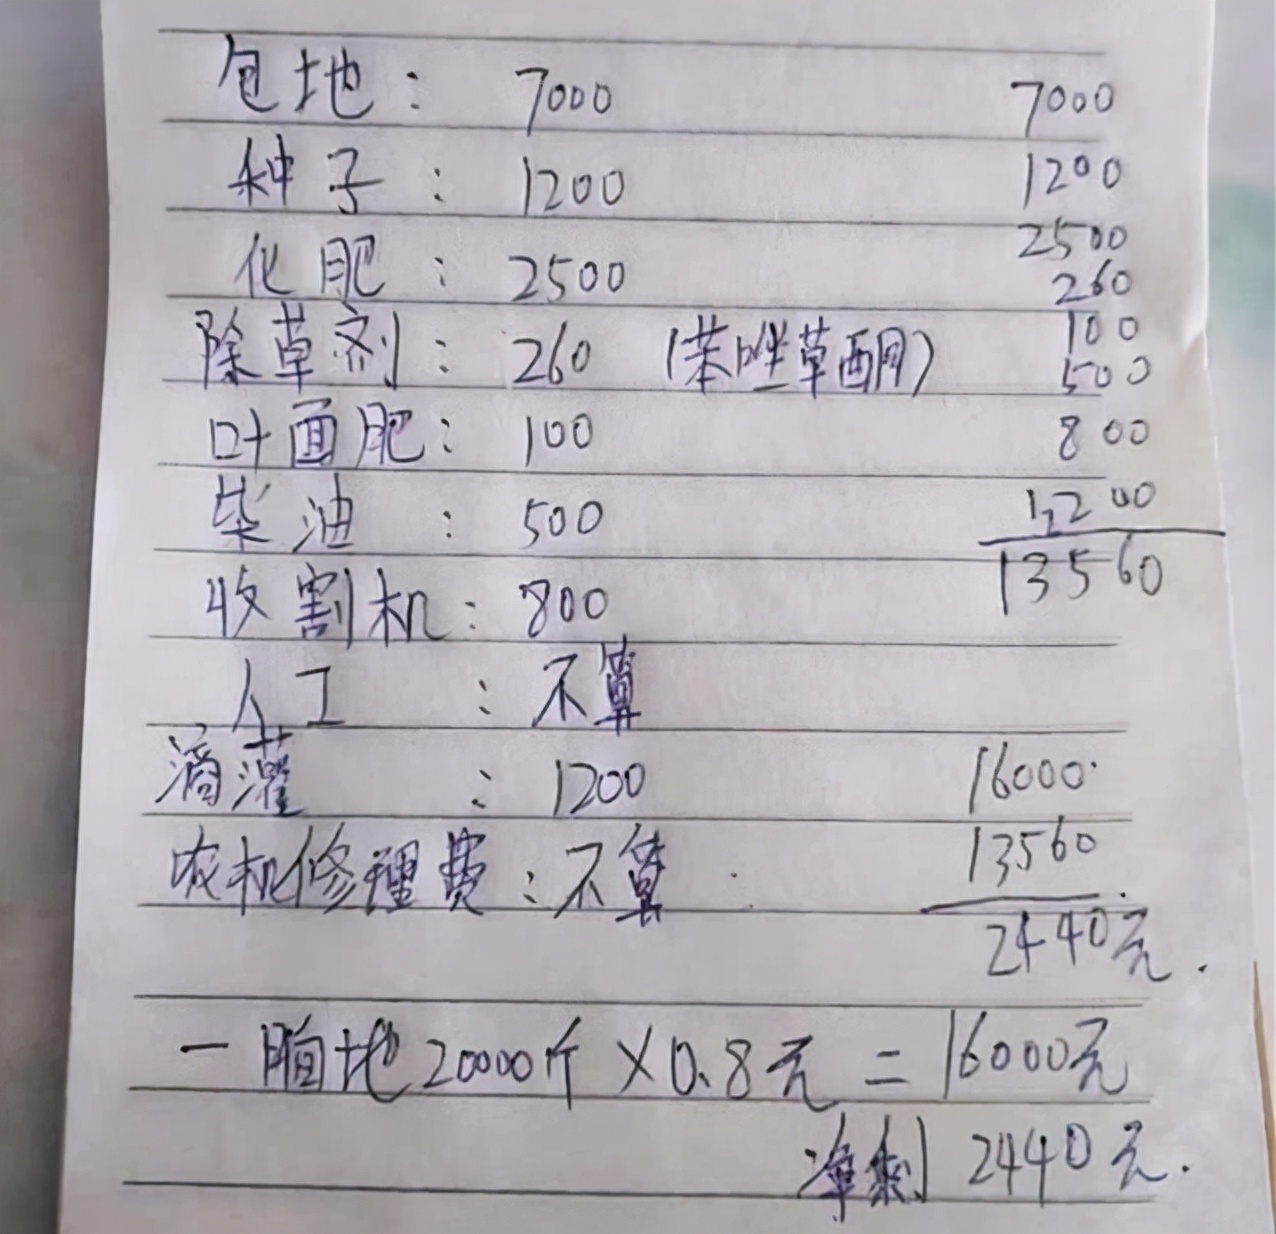 包地： 7000 7000
种子： 1200 1200
化肥： 2500 2500
260
除草剂： 260 （苯唑草酮） 100
500
叶面肥： 100 800
柴油： 500 1200
13560
收割机： 800
人工： 不算
滴灌： 1200 16000
农机修理费：不算 13560
2440元.
一晌地20000斤×0.8元=16000元
净剩 2440元.